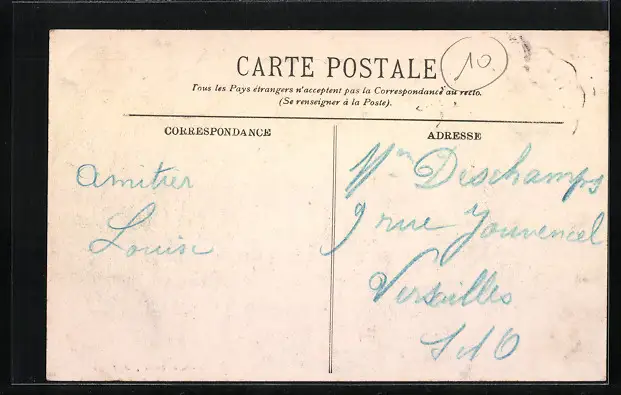 CARTE POSTALE
10.
Tous les Pays étrangers n'acceptent pas la Correspondance au recto.
(Se renseigner à la Poste).
CORRESPONDANCE
Amities
Louise
ADRESSE
Mm Deschamps
9 rue Jouvencel
Versailles
S et O